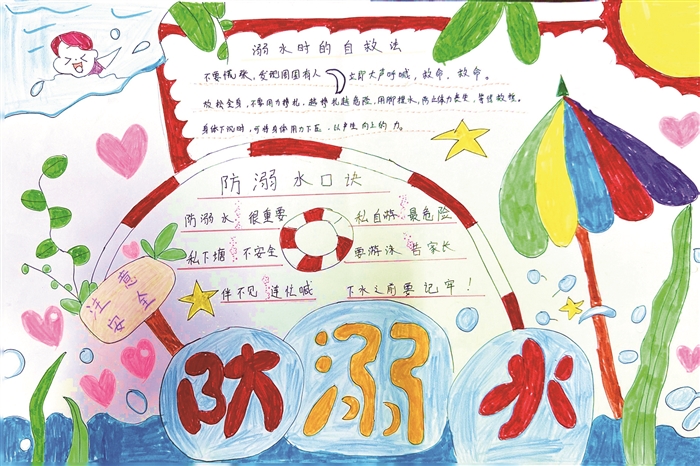 溺水时的自救法
不要慌张,发现周围有人 立即大声呼喊,救命,救命。
放松全身,不要用力挣扎,越挣扎越危险,用脚揣水,防止体力丧生,等待救援。
身体下沉时,可将身体用力下压,以产生向上的力。
防溺水口诀
防溺水 很重要 私自游 最危险
私下塘 不安全 要游泳 告家长
伴不见 连忙喊 下水之前要记牢!
注意
安全
防溺水